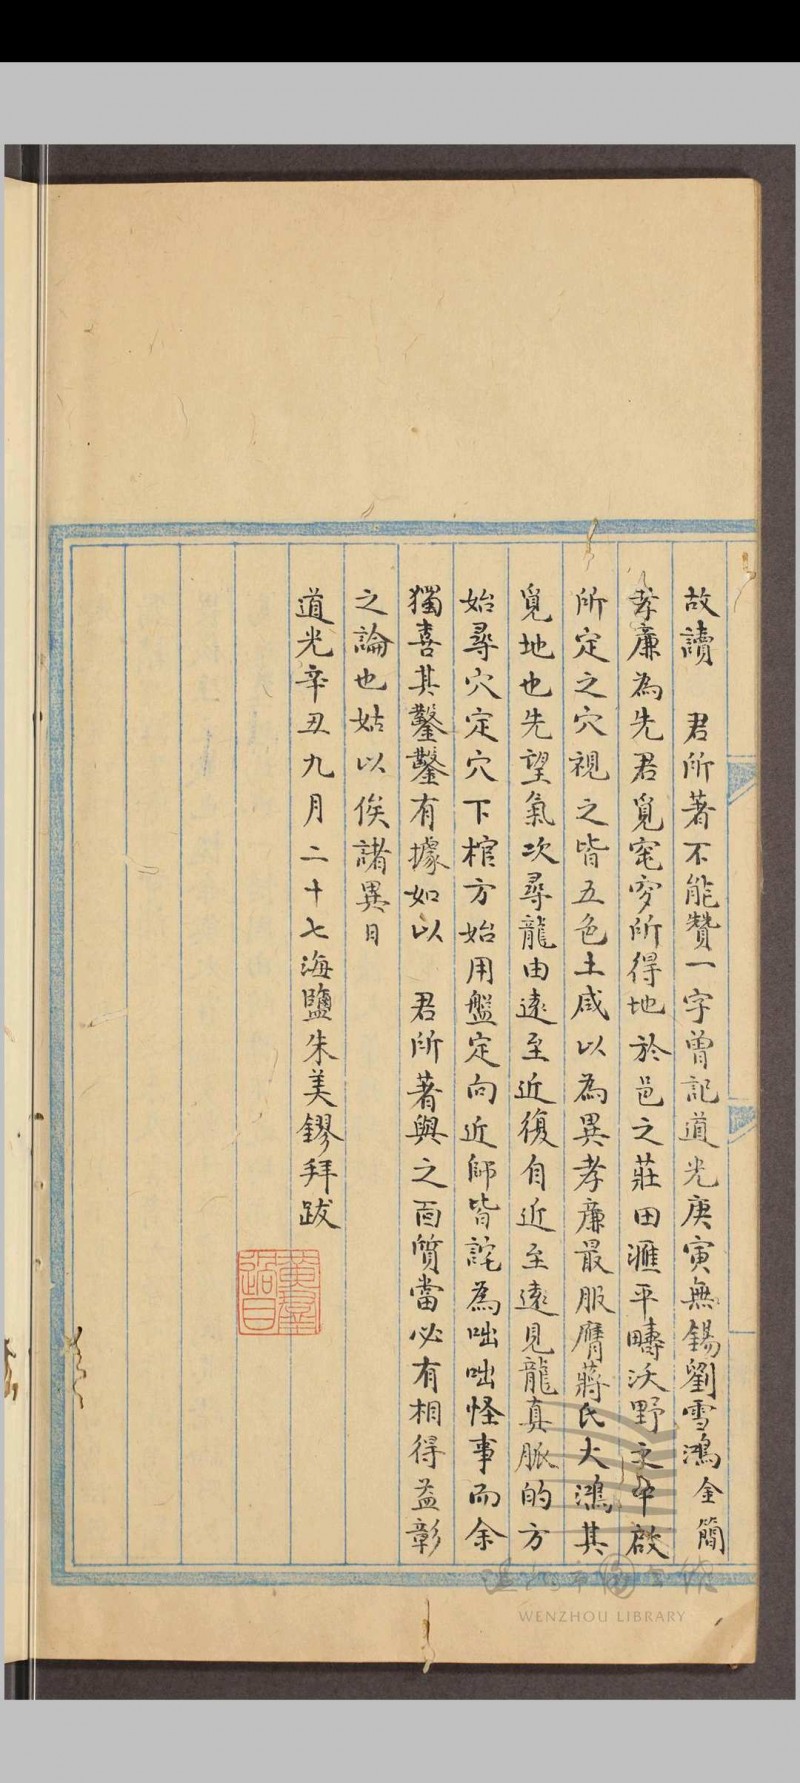 故讀　君所著不能贊一字曾記道光庚寅無錫劉雪鴻金簡
孝廉為先君覓窀穸所得地於邑之莊田滙平疇沃野之中啟
所定之穴視之皆五色土咸以為異孝廉最服膺蔣氏大鴻其
覓地也先望氣次尋龍由遠至近復自近至遠見龍真脈的方
始尋穴定穴下棺方始用盤定向近師皆詫為咄咄怪事而余
獨喜其鑿鑿有據如以　君所著與之面質當必有相得益彰
之論也姑以俟諸異日
道光辛丑九月二十七海鹽朱美鏐拜跋
黃羣
過目
溫州市圖書館
WENZHOU LIBRARY